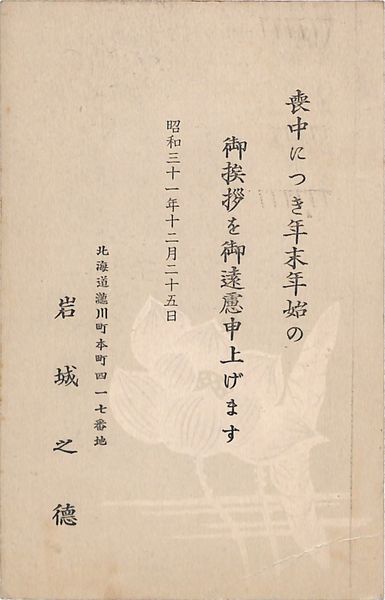 喪中につき年末年始の
御挨拶を御遠慮申上げます
昭和三十一年十二月二十五日
北海道瀧川町本町四一七番地
岩城之徳